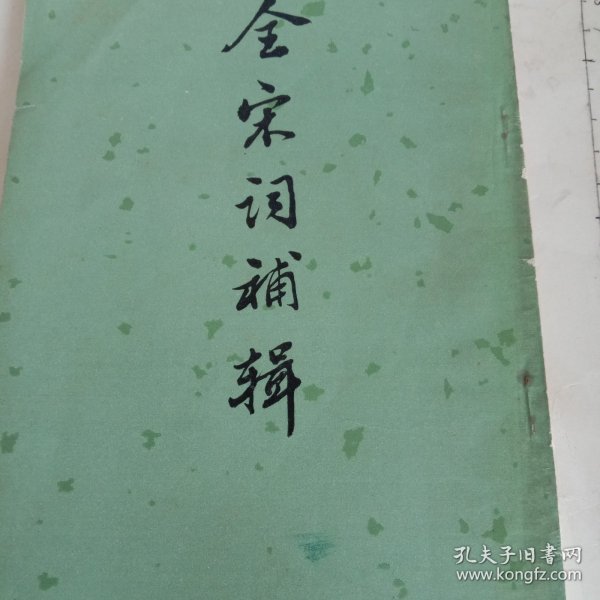 全宋词補輯
孔夫子旧书网
www.kongfz.com